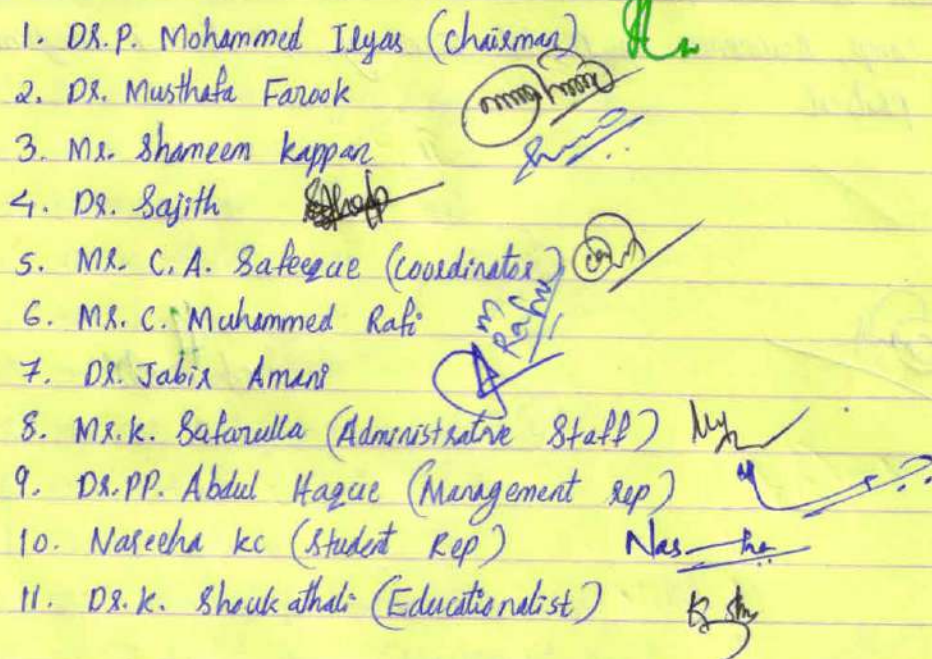 1. DR. P. Mohammed Ilyas (chairman)
2. DR. Musthafa Farook
3. MR. Shameem kappan
4. DR. Sajith
5. MR. C. A. Safeeque (coordinator)
6. MR. C. Muhammed Rafi
7. DR. Jabir Amani
8. MR. K. Safarulla (Administrative Staff)
9. DR. PP. Abdul Haque (Management rep)
10. Naseeha kc (Student Rep)
11. DR. K. Shoukathali (Educationalist)